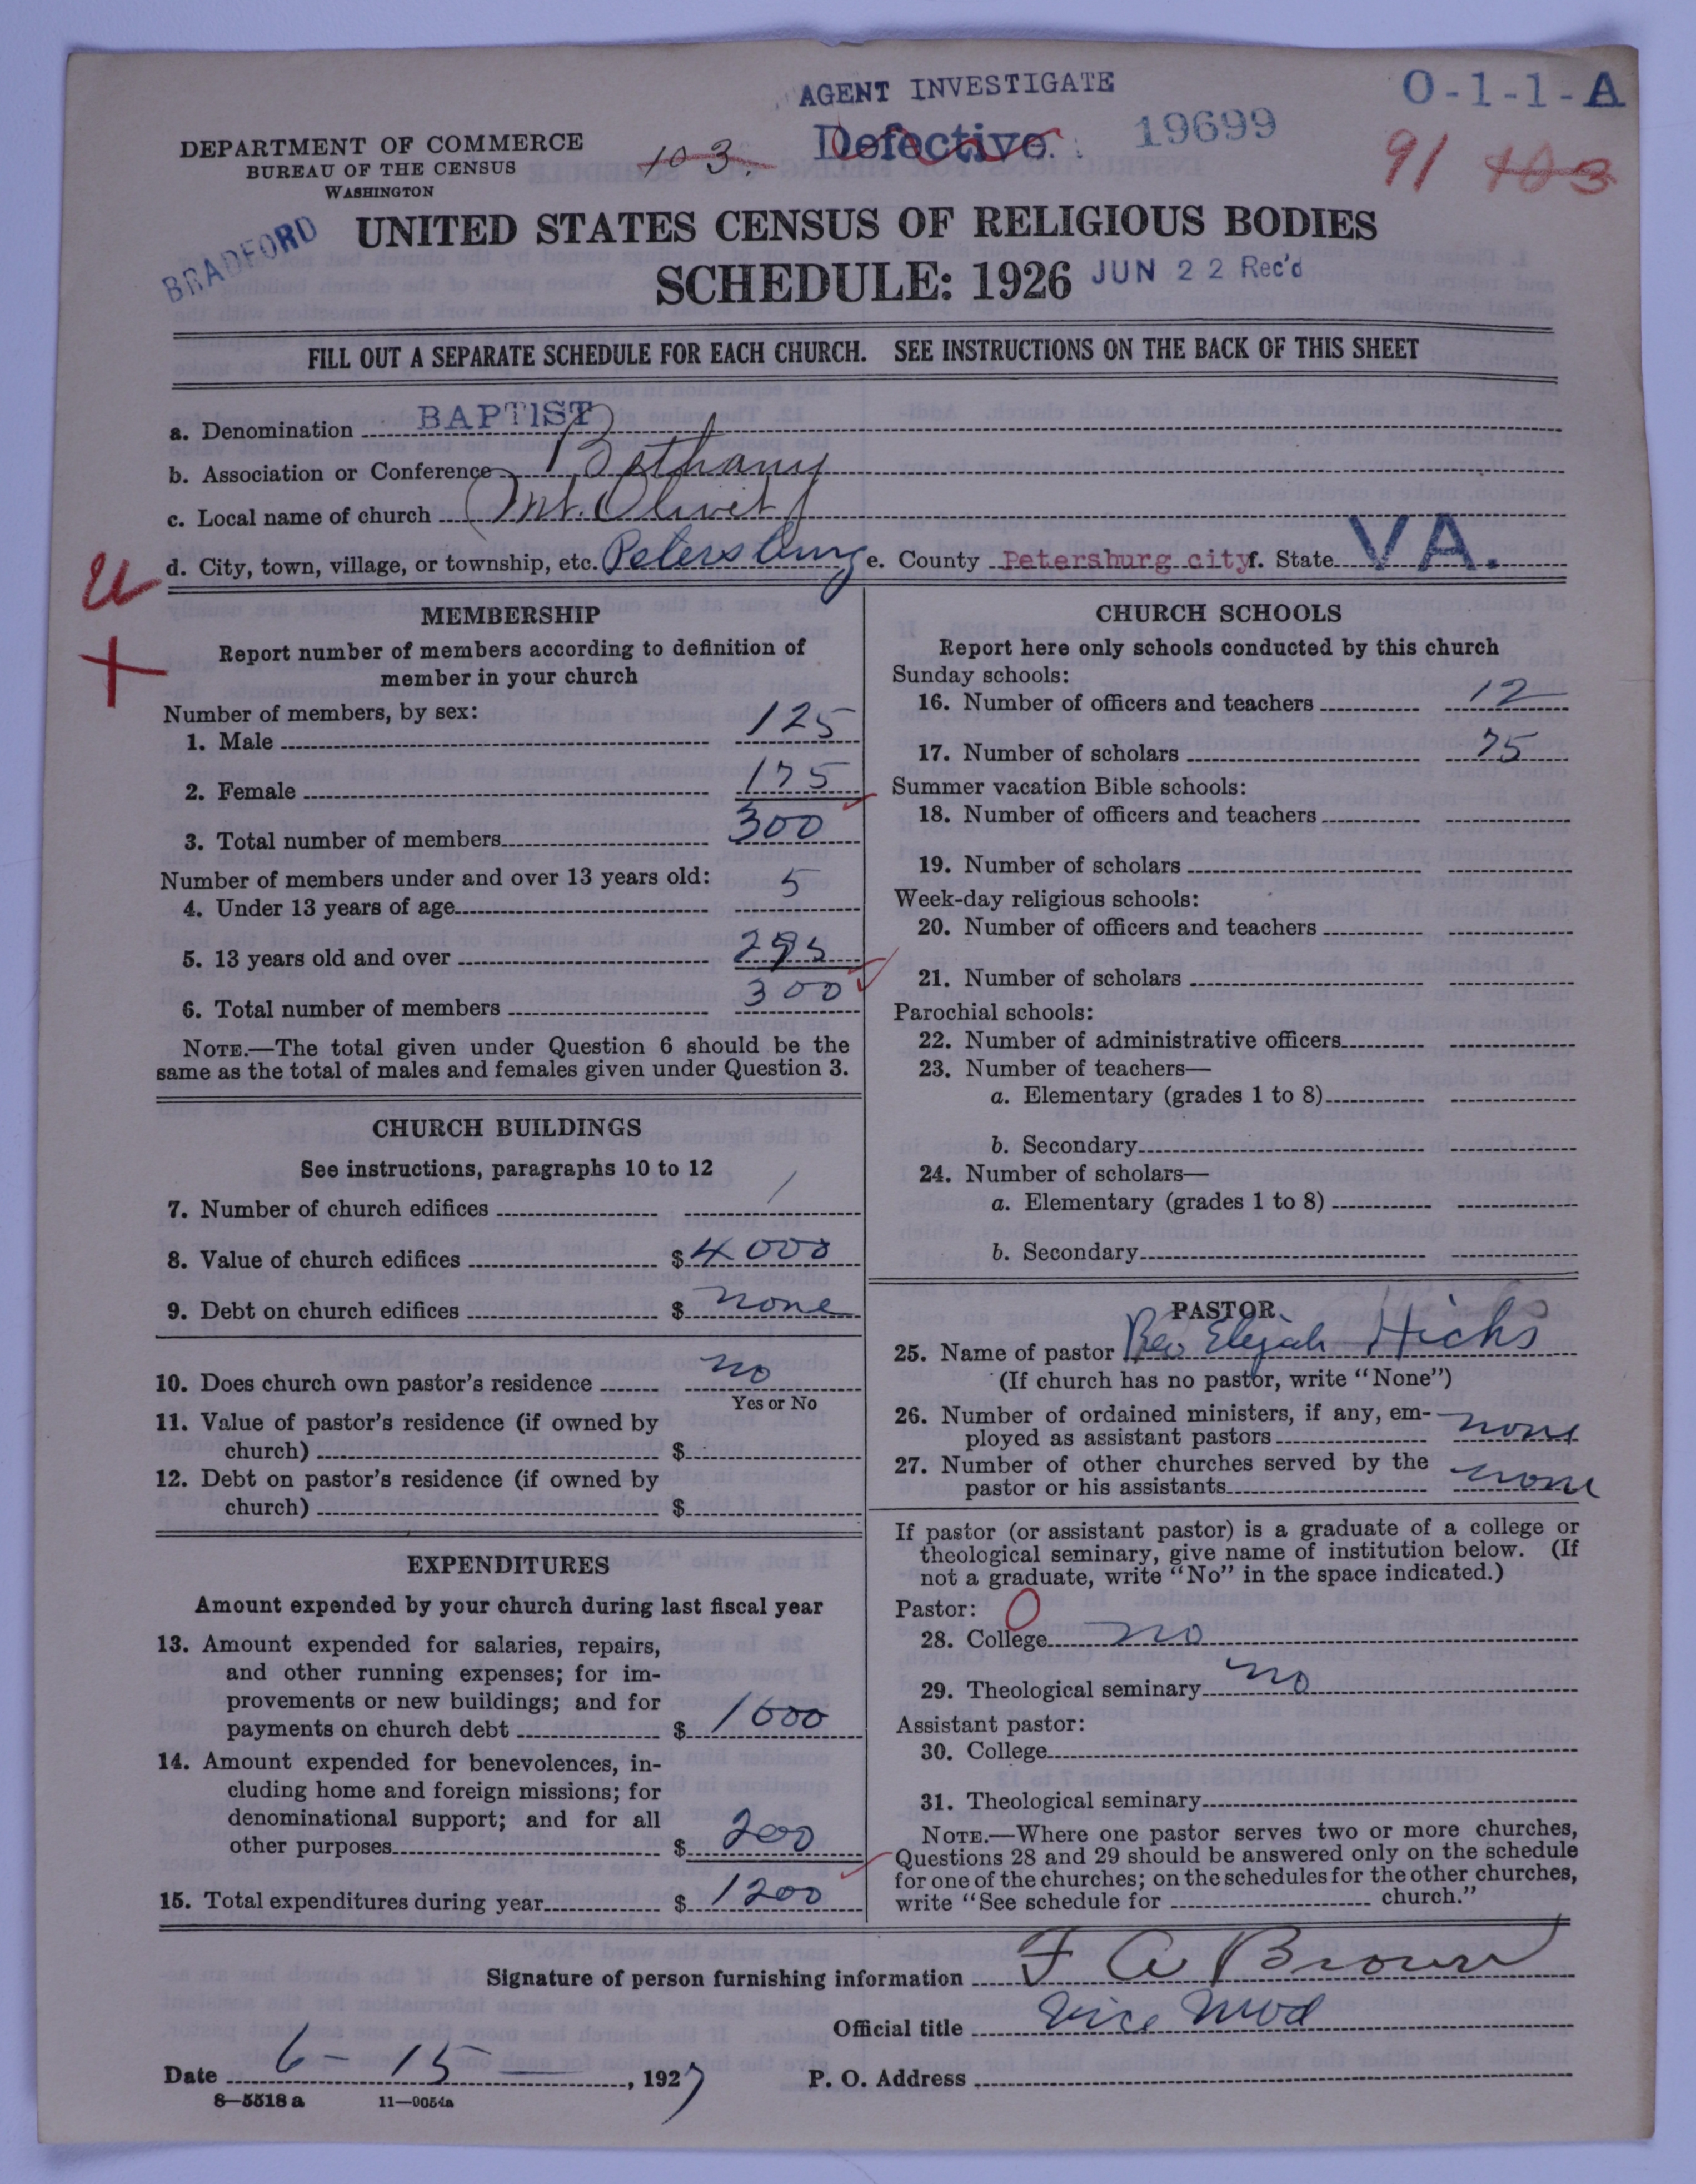 AGENT INVESTIGATE
O-1-1-A
DEPARTMENT OF COMMERCE
BUREAU OF THE CENSUS
WASHINGTON
103.
Defective.
19699
91 103
BRADFORD
UNITED STATES CENSUS OF RELIGIOUS BODIES
SCHEDULE: 1926
JUN 22 Rec'd
FILL OUT A SEPARATE SCHEDULE FOR EACH CHURCH. SEE INSTRUCTIONS ON THE BACK OF THIS SHEET
a. Denomination BAPTIST
b. Association or Conference Bethany
c. Local name of church Mt. Olivet
d. City, town, village, or township, etc. Petersburg e. County Petersburg city f. State VA.
MEMBERSHIP
Report number of members according to definition of
member in your church
Number of members, by sex:
1. Male 125
2. Female 175
3. Total number of members 300
Number of members under and over 13 years old:
4. Under 13 years of age 5
5. 13 years old and over 295
6. Total number of members 300
NOTE.—The total given under Question 6 should be the
same as the total of males and females given under Question 3.
CHURCH BUILDINGS
See instructions, paragraphs 10 to 12
7. Number of church edifices 1
8. Value of church edifices $ 4000
9. Debt on church edifices $ none
10. Does church own pastor's residence no
Yes or No
11. Value of pastor's residence (if owned by
church) $
12. Debt on pastor's residence (if owned by
church) $
EXPENDITURES
Amount expended by your church during last fiscal year
13. Amount expended for salaries, repairs,
and other running expenses; for im-
provements or new buildings; and for
payments on church debt $ 1000
14. Amount expended for benevolences, in-
cluding home and foreign missions; for
denominational support; and for all
other purposes $ 200
15. Total expenditures during year $ 1200
CHURCH SCHOOLS
Report here only schools conducted by this church
Sunday schools:
16. Number of officers and teachers 12
17. Number of scholars 75
Summer vacation Bible schools:
18. Number of officers and teachers
19. Number of scholars
Week-day religious schools:
20. Number of officers and teachers
21. Number of scholars
Parochial schools:
22. Number of administrative officers
23. Number of teachers—
a. Elementary (grades 1 to 8)
b. Secondary
24. Number of scholars—
a. Elementary (grades 1 to 8)
b. Secondary
PASTOR
25. Name of pastor Rev Elijah Hicks
(If church has no pastor, write "None")
26. Number of ordained ministers, if any, em-
ployed as assistant pastors none
27. Number of other churches served by the
pastor or his assistants none
If pastor (or assistant pastor) is a graduate of a college or
theological seminary, give name of institution below. (If
not a graduate, write "No" in the space indicated.)
Pastor: 0
28. College no
29. Theological seminary no
Assistant pastor:
30. College
31. Theological seminary
NOTE.—Where one pastor serves two or more churches,
Questions 28 and 29 should be answered only on the schedule
for one of the churches; on the schedules for the other churches,
write "See schedule for church."
Signature of person furnishing information F A Brown
Official title Vice Mod
Date 6-15, 1927 P. O. Address
8—5518 a 11—9054a